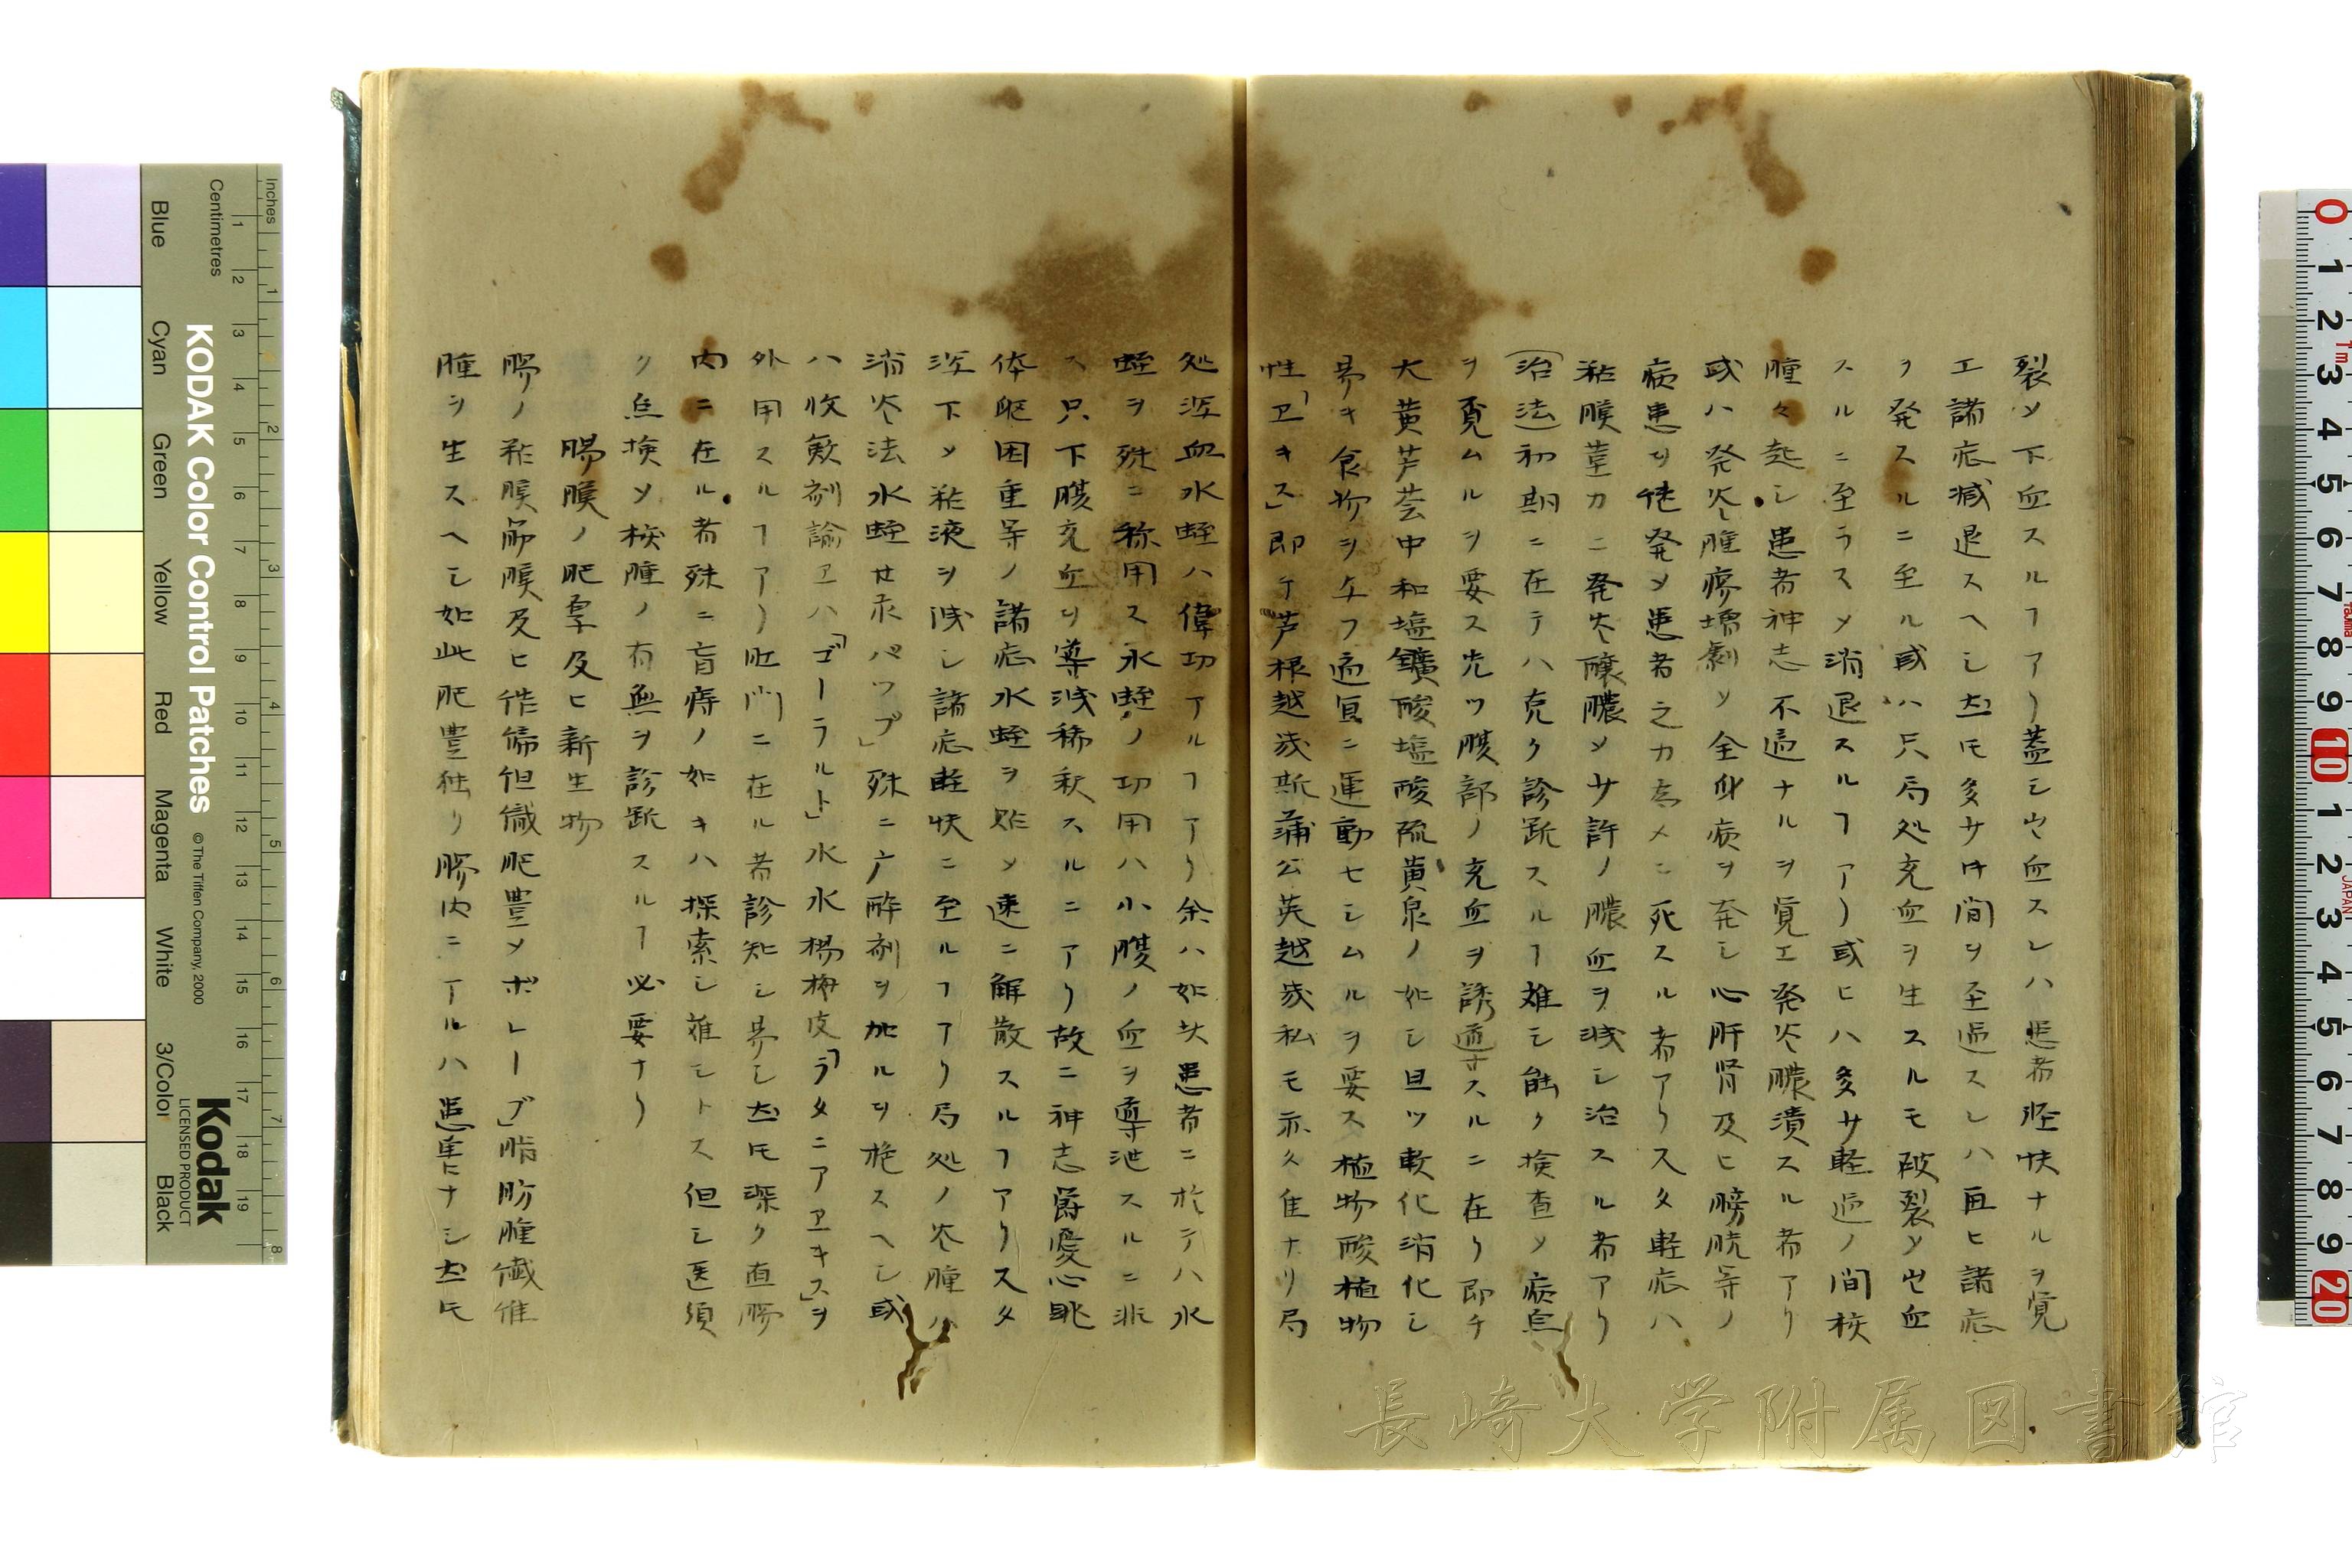 裂〆下血スルヿアリ蓋シ出血スレハ患者軽快ナルヲ覚
エ諸症減退スヘシ𪜈多少ノ間ヲ至過スレハ再ヒ諸症
ヲ発スルニ至ル或ハ只局処充血ヲ生スルモ破裂〆出血
スルニ至ラス〆消退スルヿアリ或ヒハ多少軽過ノ間核
腫々起シ患者神志不適ナルヲ覚エ発炎膿潰スル者アリ
或ハ発炎腫疼増劇〆全身病ヲ発シ心肝腎及ヒ膀胱等ノ
病患ヲ継発〆患者之カ為メニ死スル者アリ又タ軽症ハ
粘膜葦カニ発炎醸膿〆少許ノ膿血ヲ洩シ治スル者アリ
(治法)初期ニ在テハ克ク診断スルヿ難シ能ク検査〆病烏
ヲ覓ムルヲ要ス先ツ腹部ノ充血ヲ誘導スルニ在リ即チ
大黄芦薈中和塩鑛酸塩酸硫黄泉ノ如シ且ツ軟化消化シ
易キ食物ヲ与フ適宜ニ運動セシムルヲ要ス植物酸植物
性「ヱキス」即チ芦根越幾斯蒲公英越幾私モ亦タ佳ナリ局
処瀉血水蛭ハ偉功アルヿアリ余ハ如此患者ニ於テハ水
蛭ヲ殊ニ称用ス水蛭ノ功用ハ小腹ノ血ヲ導泄スルニ非
ス只下腹充血ヲ導洩稀釈スルニアリ故ニ神志爵憂心眺
体軀困重等ノ諸症水蛭ヲ貼〆速ニ解散スルヿアリ又タ
瀉下〆粘液ヲ洩シ諸症軽快ニ至ルヿアリ局処ノ炎腫ハ
消炎法水蛭甘汞パップ」殊ニ麻酔剤ヲ加ルヲ施スヘシ或
ハ收斂剤諭ヱハ「ゴーラルト」水水楊梅皮「ラタニアヱキス」ヲ
外用スルヿアリ肛門ニ在ル者診知シ易シ𪜈深ク直腸
内ニ在ル者殊ニ盲痔ノ如キハ探索シ難シトス但シ医須
ク烏検〆核腫ノ有無ヲ診断スルヿ必要ナリ
腸膜ノ肥厚及ヒ新生物
腸ノ粘膜筋膜及ヒ作僑但織肥豊〆ボレーブ」脂肪腫織維
腫ヲ生スヘシ如此肥豊独リ腸内ニアルハ患害ナシ𪜈
長崎大学附属図書館
KODAK Color Control Patches
© The Tiffen Company, 2000
Kodak
LICENSED PRODUCT
Inches
Centimetres
Blue
Cyan
Green
Yellow
Red
Magenta
White
3/Color
Black